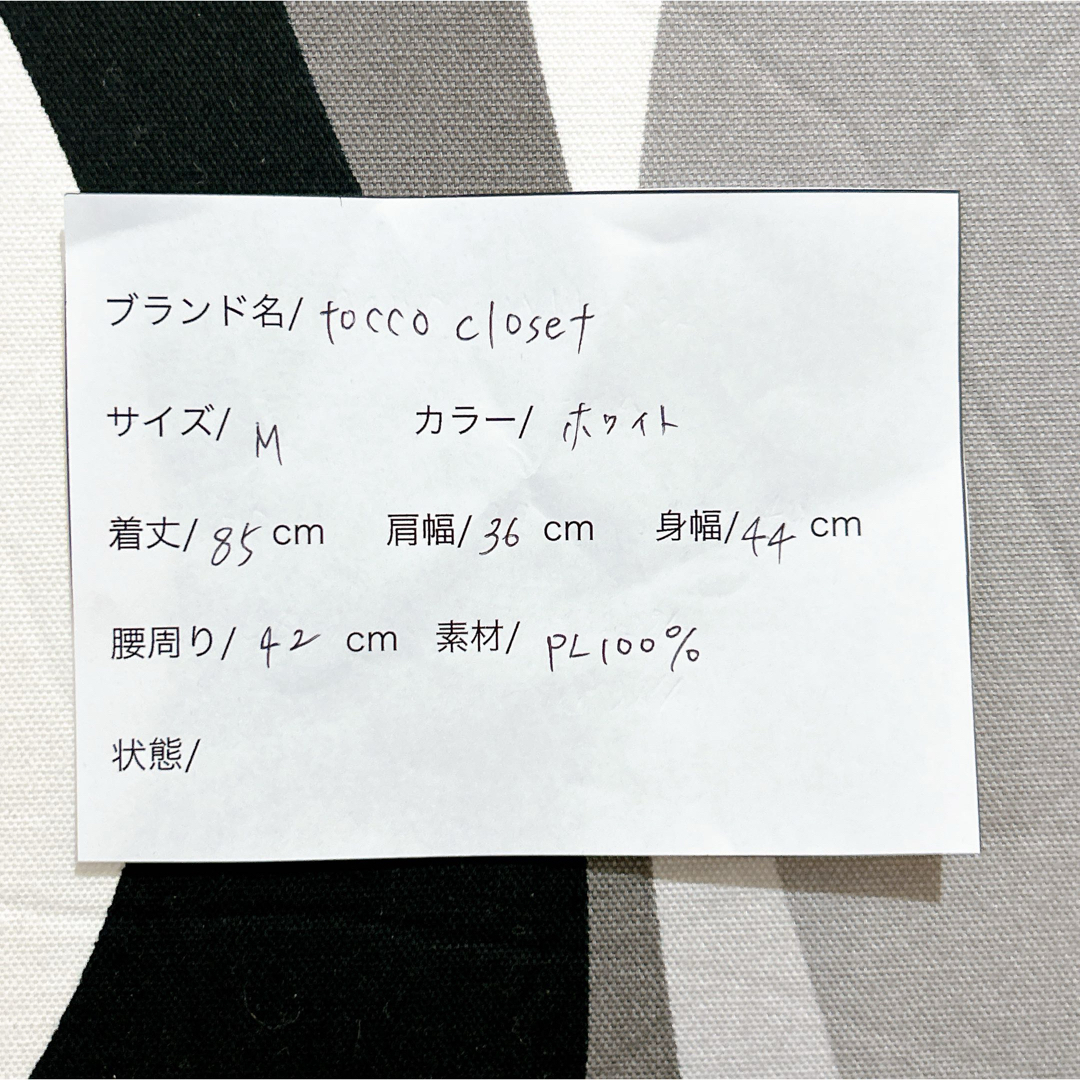 ブランド名/ tocco closet
サイズ/ M カラー/ ホワイト
着丈/ 85 cm 肩幅/ 36 cm 身幅/ 44 cm
腰周り/ 42 cm 素材/ PL100%
状態/